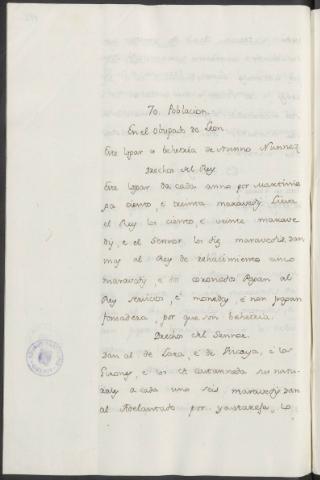 70. Poblacion
En el Obispado de Leon
Este logar es behetria de Nunno Nunnez
Derechos del Rey
Este logar da cada anno por Martinie
ga ciento, e treinta maravedis. Lieva
el Rey los ciento, e veinte marave
dis, e el Sennor los diez maravedis, dan
mas al Rey de
maravedis, e Pagan al
Rey servicios, e monedas, e non pagan
fonsadera, por que son behetria.
Derechos del Sennor.
Dan al de Lara, e de Vizcaya, e los
e los de Castanneda sus natu
rales a cada uno seis maravedis dan
al Adelantado por yantareja, Lo